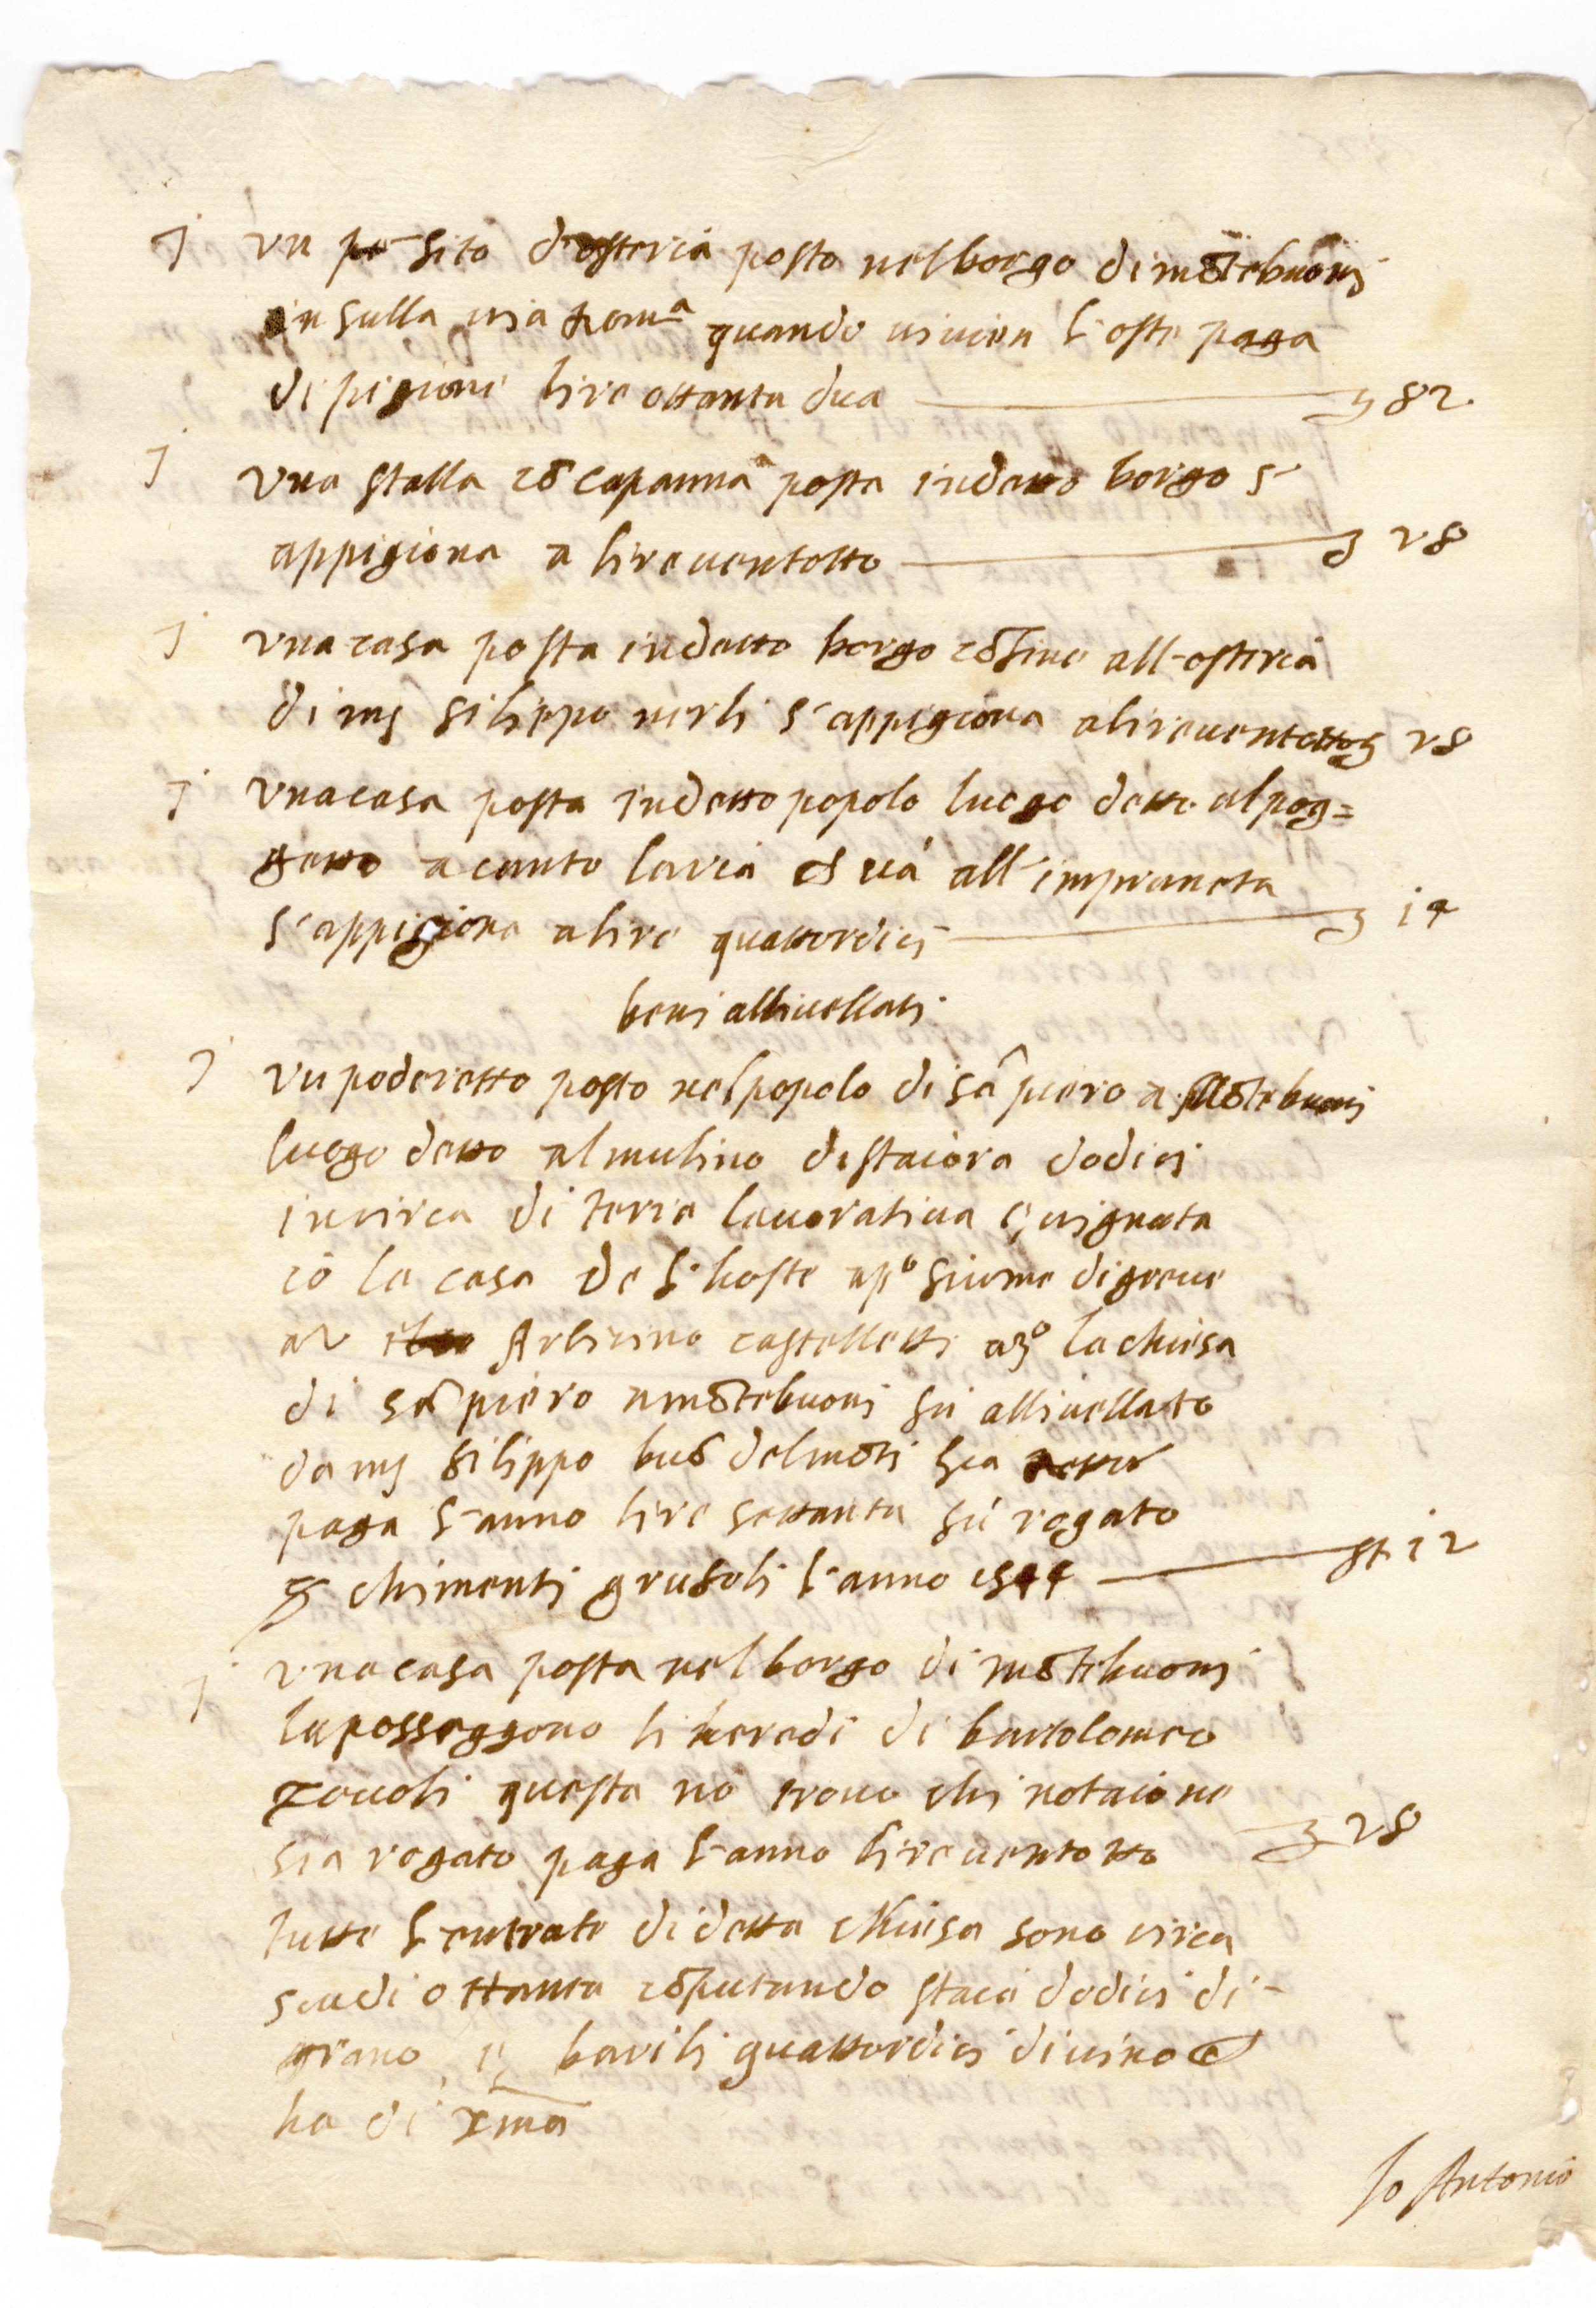 j un sito d'osteria posto nel borgo di mõtebuoni
in sulla via Romª quando vi vien l'oste paga
di pigione lire ottanta dua 82.
j una stalla cõ capanna posta in detto borgo s'
appigiona a lire ventotto 28
j una casa posta in detto borgo cõfine all'osteria
di mʃ filippo nerli s'appigiona a lire ventotto 28
j una casa posta in detto popolo luogo detto al pog=
getto acanto la via che và all'impruneta
s'appigiona a lire quattordici 14
beni allivellati
j un poderetto posto nel popolo di sã piero a mõtebuoni
luogo detto al mulino di staiora dodici
in circa di terra lavorativa e vignata
cõ la casa de l'hoste apº fiume di greve
a2 castelletti a3º la chiesa
di sã piero a mõtebuoni fu allivellato
da mʃ filippo buõdelmõti
paga l'anno lire settanta fu rogato
ꝑ chimenti grifoli l'anno 1544 st 12
j una casa posta nel borgo di mõtebuoni
la posseggono li heredi di bartolomeo
zoccoli questa nõ trovo chi notaio ne
sia rogato paga l'anno lire ventotto 28
tutte l'entrate di detta chiesa sono circa
scudi ottanta cõputando staia dodici di
grano, e barili quattordici di vino e
ha di Xma
Io Antonio